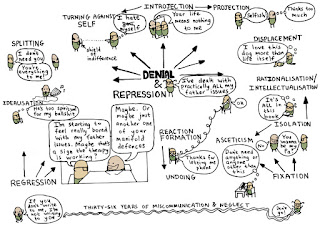 INTROJECTION
PROJECTION
TURNING AGAINST
SELF
I hate
myself
Your life
means nothing to
me
Selfish
Thinks too
much
SPLITTING
I don't
need you
You're
everything
to me!
shield
of
indifference
DISPLACEMENT
I love this
dog more than
life itself
DENIAL
&
REPRESSION
I've dealt with
practically ALL my
father issues
RATIONALISATION/
INTELLECTUALISATION
It's
all in
this
book
IDEALISATION
Not too
spiritual for
my
I'm starting to
feel really bored
with my father
issues. Maybe that's
a sign the therapy
is working?
Maybe. Or
maybe just
another one
of your
manifold
defences
REACTION
FORMATION
Thanks for
letting me
phone
UNDOING
ASCETICISM
Don't need
anything or
anyone
other than
this
ISOLATION
No
You
wanna be
my pal?
FIXATION
REGRESSION
If you
don't write
to me, I'm
not writing
to you
THIRTY-SIX YEARS OF MISCOMMUNICATION & NEGLECT
Don't
go!